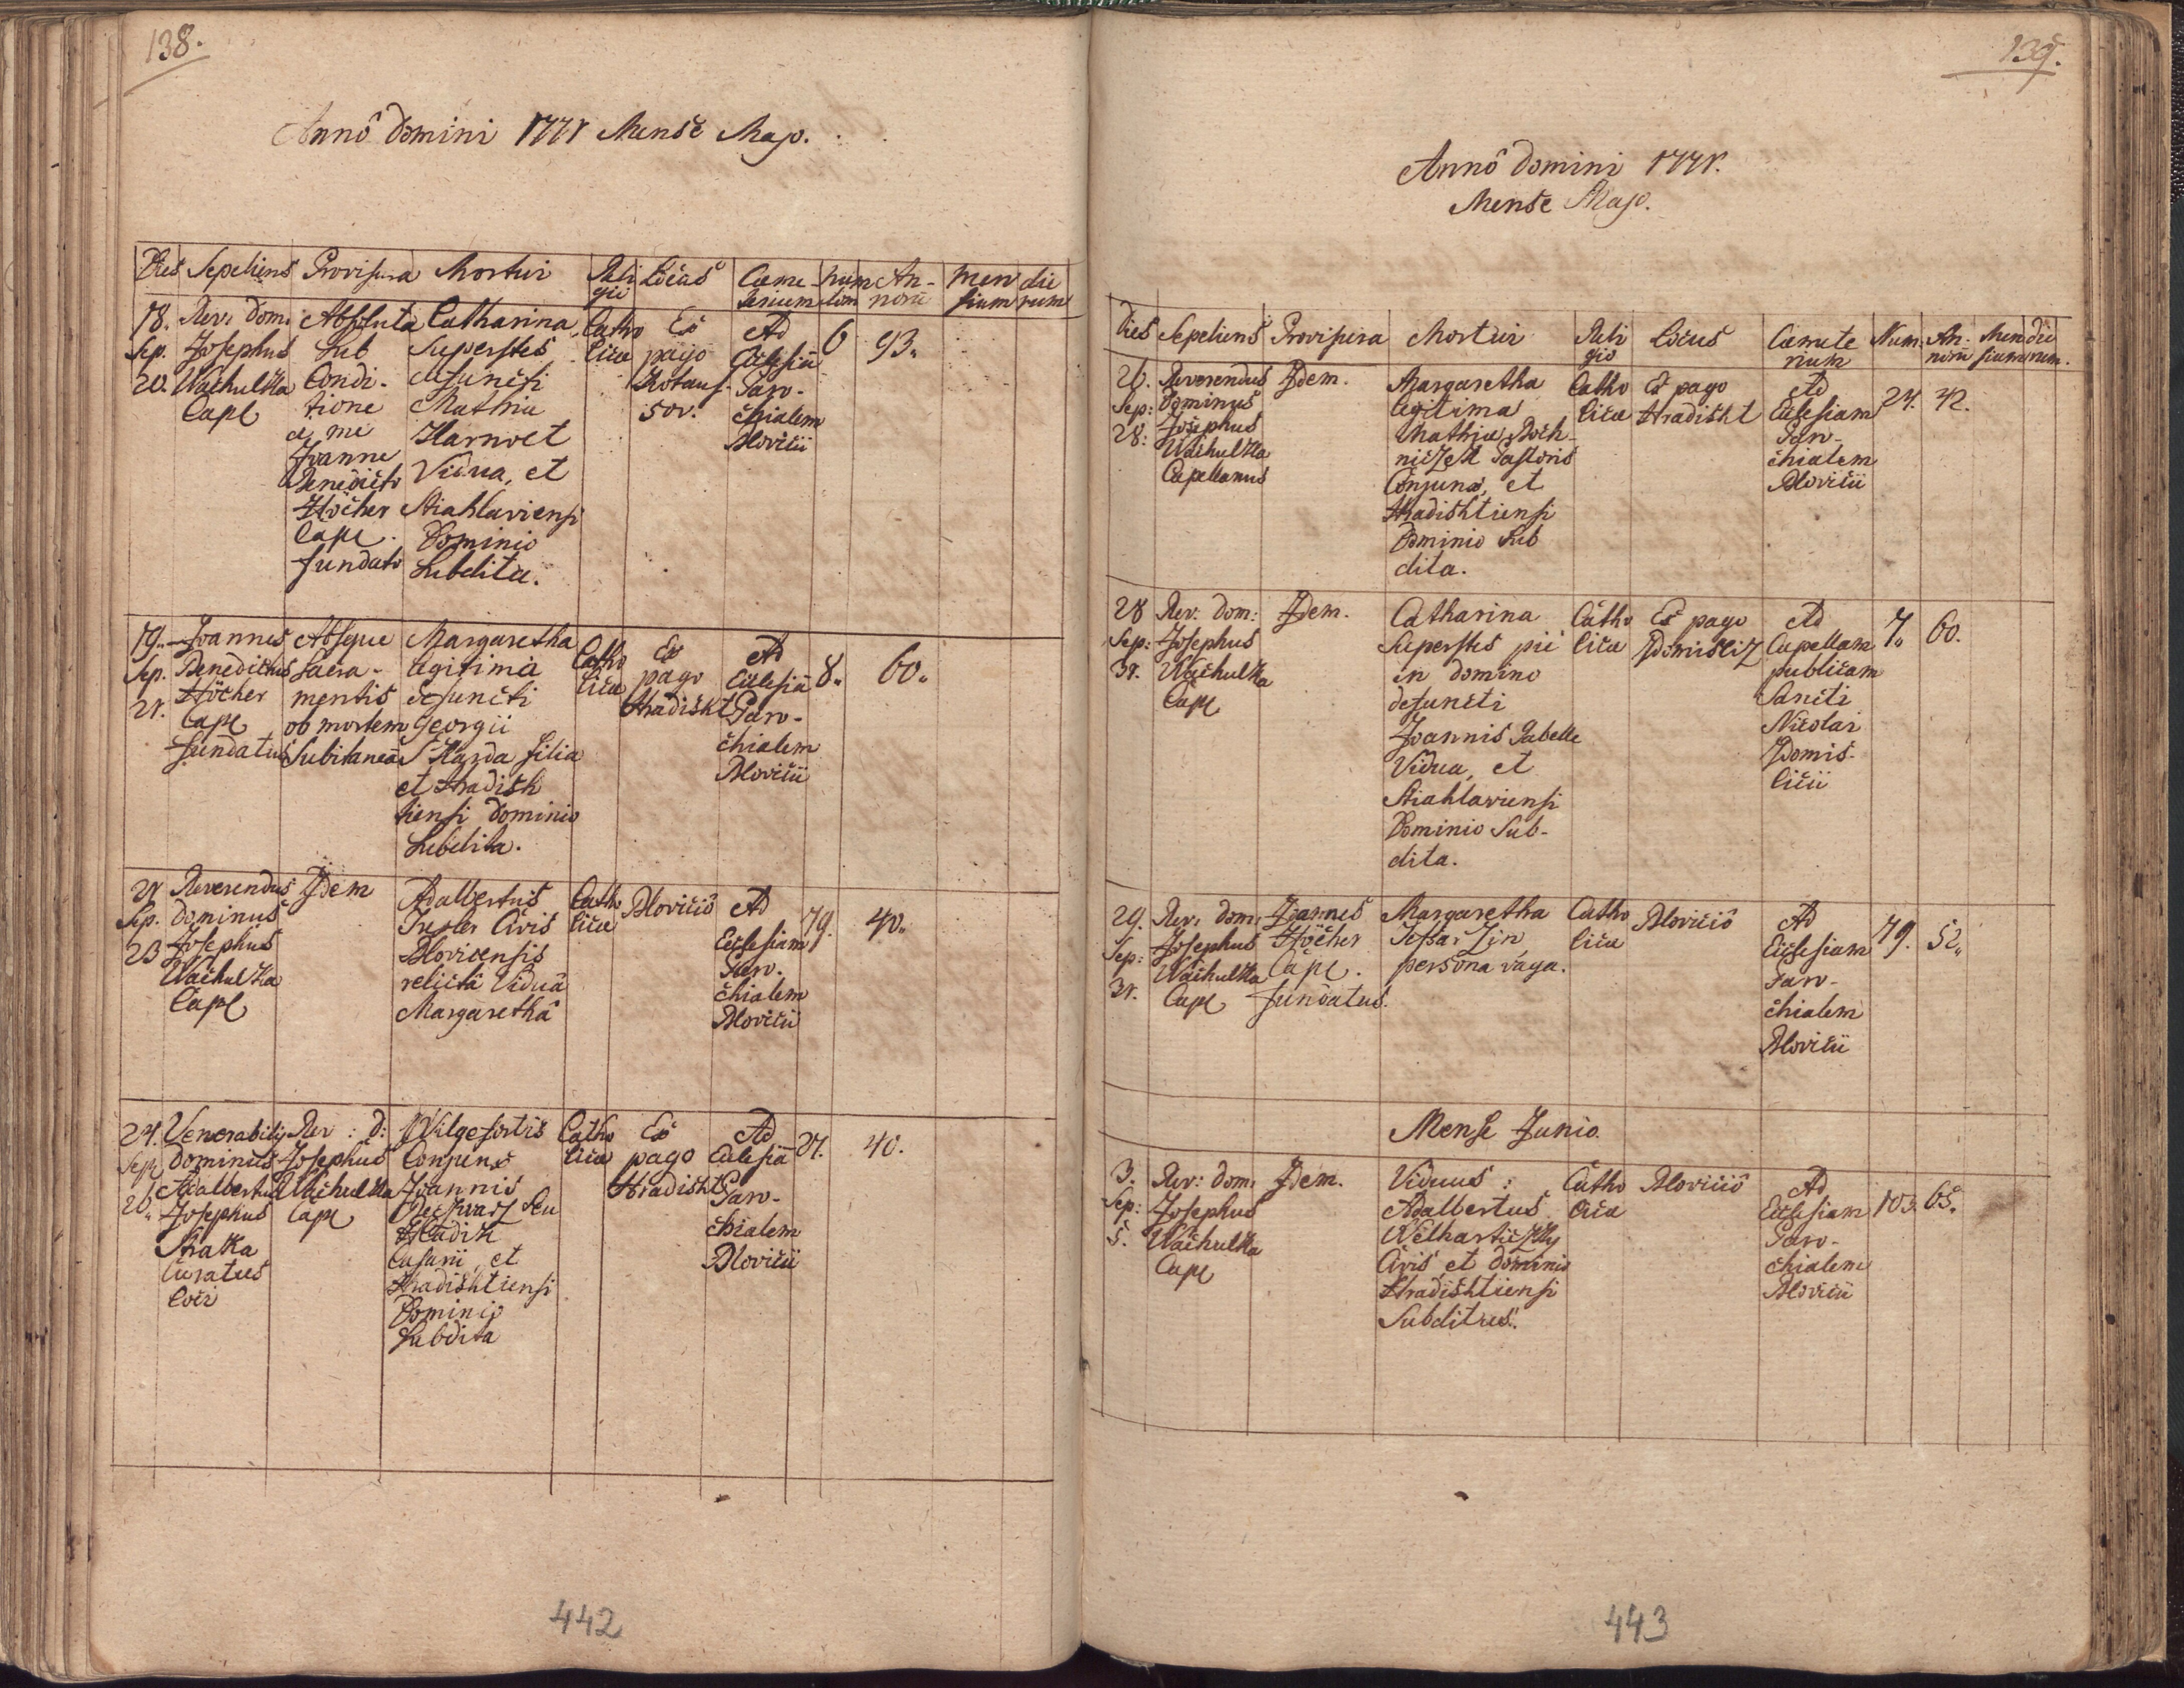 138.
Annô Domini 1771 Mense Majo.
Dies Sepeliens Provisura Mortui Reli gio Locus Cœme terium Num dom An- norũ Men sium die rum
18. Sep. 20.
Rev: Dom:
Josephus
Wachulka
Capl
Absoluta
sub
Condi-
tione
a me
Joanne
Benedicto
Höcher
Capl.
fundato
Catharina
Superstes
defuncti
Mathiæ
Harnoet
Vidua, et
Stiahlaviensi
Dominio
Subdita.
Catho
lica
Ex
pago
Kotaus-
sov.
Ad
Ecclesiã
Paro-
chialem
Blovicii
6
93.
19. Sep. 21.
Joannes
Benedictus
Höcher
Capl
fundatus
Absque
Sacra-
mentis
ob mortem
Subitaneã
Margaretha
legitima
defuncti
Georgii
Skarda filia
et Hradish
tiensi Dominio
Subdita.
Catho
lica
Ex
pago
Hradisht
Ad
Ecclesiã
Paro-
chialem
Blovicii
8.
60.
21 Sep. 23
Reverendus
Dominus
Josephus
Wachulka
Capl
Idem
Adalbertus
Civis
Blovicensis
relictâ Viduâ
Margarethâ
Catho
lica
Bloviciô
Ad
Ecclesiam
Paro-
chialem
Blovicii
79.
40.
24. Sep. 26.
Venerabilis
Dominus
Adalbertus
Josephus
Straka
Curatus
loci
Rev: D:
Josephus
Wachulka
Capl
Wilgefortis
Conjunx
Joannis
seu
Hladik
Casarii, et
Hradishtiensi
Dominio
Subdita
Catho
lica
Ex
pago
Hradisht
Ad
Ecclesiã
Paro-
chialem
Blovicii
21.
40.
442
139.
Annô Domini 1771.
Mense Majo.
Dies Sepeliens Provisura Mortui Reli gio Locus Cœmete rium Num: An- norũ Men sium die rum.
26. Sep: 28:
Reverendus
Dominus
Josephus
Wachulka
Capellanus
Idem.
Margaretha
legitima
Mathiæ Boch-
niczek Pastoris
Conjunx, et
Hradishtiensi
Dominio Sub
dita.
Catho
lica
Ex pago
Hradisht
Ad
Ecclesiam
Paro-
chialem
Blovicii
24.
42.
28 Sep: 31.
Rev: Dom:
Josephus
Wachulka
Capl
Idem.
Catharina
Superstes pii
in Domino
defuncti
Joannis Sabelle
Vidua, et
Stiahlaviensi
Dominio Sub-
dita.
Catho
lica
Ex pago
Zdomislitz
Ad
Capellam
publicam
Sancti
Nicolai
Zdomis-
licii
7.
60.
29. Sep: 31.
Rev: Dom:
Josephus
Wachulka
Capl
Joannes
Höcher
Capl.
fundatus.
Margaretha
Tessarzin
persona vaga.
Catho
lica
Bloviciô
Ad
Ecclesiam
Paro-
chialem
Blovicii
79.
52.
Mense Junio.
3. Sep: 5.
Rev: Dom:
Josephus
Wachulka
Capl
Idem.
Viduus:
Adalbertus
Welharticzky
Civis et Dominio
Hradishtiensi
Subditus.
Catho
lica
Bloviciô
Ad
Ecclesiam
Paro-
chialem
Blovicii
103.
65.
443